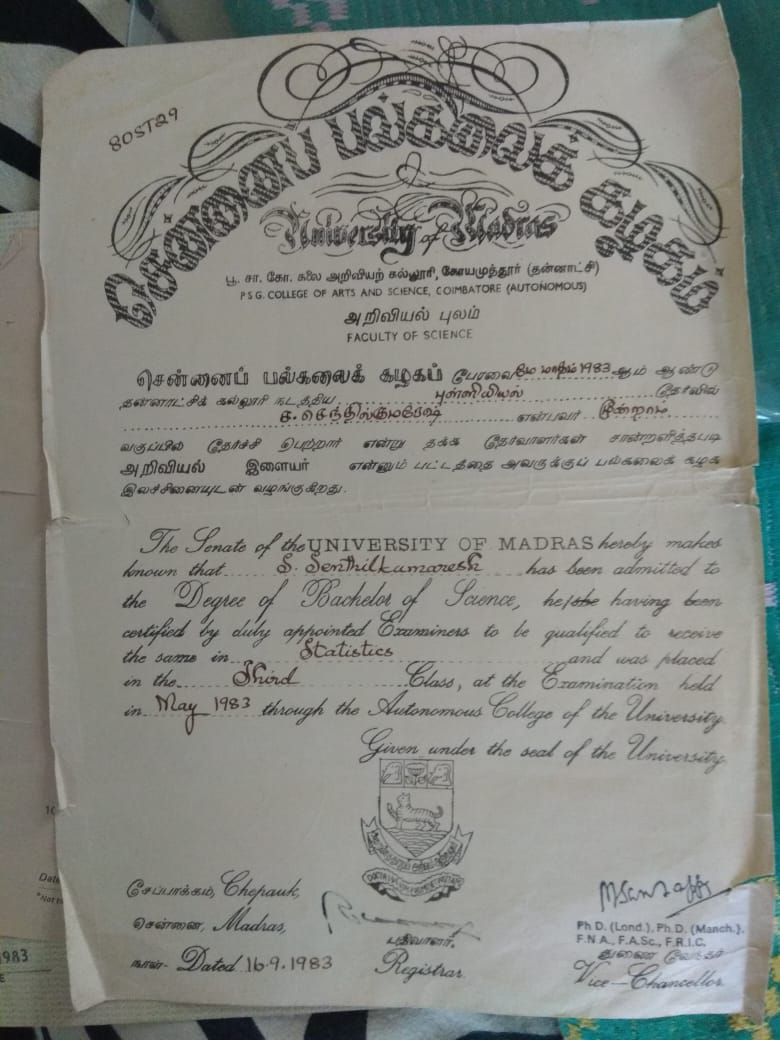 80ST29
சென்னைப் பல்கலைக் கழகம்
University of Madras
பூ. சா. கோ. கலை அறிவியற் கல்லூரி, கோயமுத்தூர் (தன்னாட்சி)
P S G. COLLEGE OF ARTS AND SCIENCE, COIMBATORE (AUTONOMOUS)
அறிவியல் புலம்
FACULTY OF SCIENCE
சென்னைப் பல்கலைக் கழகப் பேரவை மே மாதம் 1983 ஆம் ஆண்டு
தன்னாட்சிக் கல்லூரி நடத்திய புள்ளியியல் தேர்வில்
ச. செந்தில்குமரேஷ் என்பவர் மூன்றாம்
வகுப்பில் தேர்ச்சி பெற்றார் என்று தக்க தேர்வாளர்கள் சான்றளித்தபடி
அறிவியல் இளையர் என்னும் பட்டத்தை அவருக்குப் பல்கலைக் கழக
இலச்சினையுடன் வழங்குகிறது.
The Senate of the UNIVERSITY OF MADRAS hereby makes
known that S. Senthilkumaresh has been admitted to
the Degree of Bachelor of Science, he/she having been
certified by duly appointed Examiners to be qualified to receive
the same in Statistics and was placed
in the Third Class, at the Examination held
in May 1983 through the Autonomous College of the University
Given under the seal of the University.
சேப்பாக்கம், Chepauk,
சென்னை, Madras,
நாள்- Dated 16.9.1983
பதிவாளர்.
Registrar
Ph D. (Lond.), Ph D. (Manch.),
F.N.A., F.A.Sc., F.R.I.C.
துணை வேந்தர்
Vice-Chancellor
10
Date
*Not
1983
E